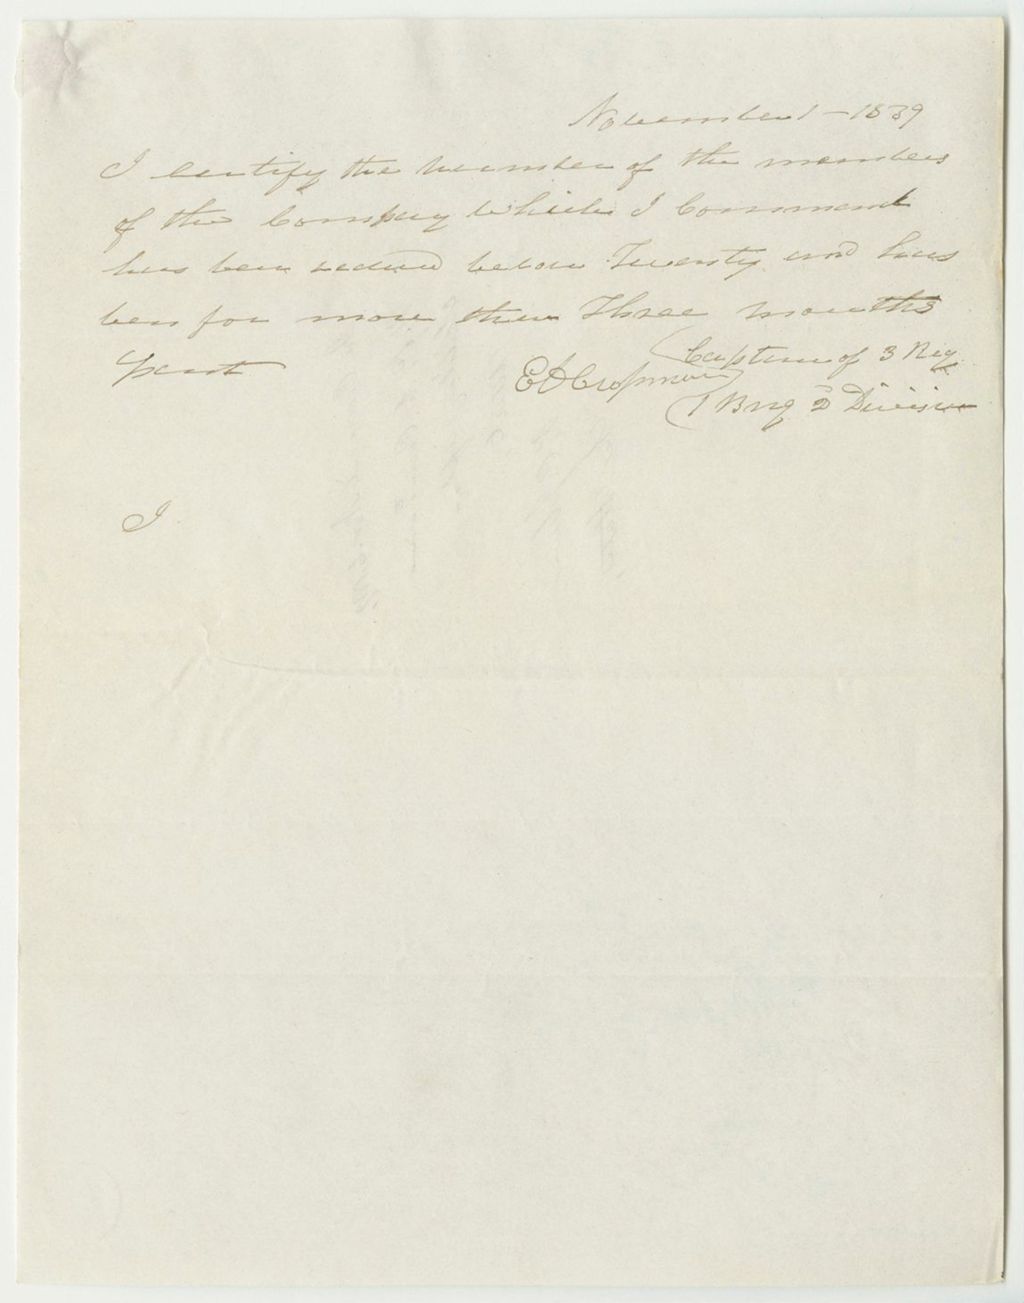 November 1 - 1839
I certify the Number of the members
of the Company Which I Command
has been reduced below Twenty and has
been for more than Three months
past
Captain of 3 Reg
1 Brig 2 Division
I